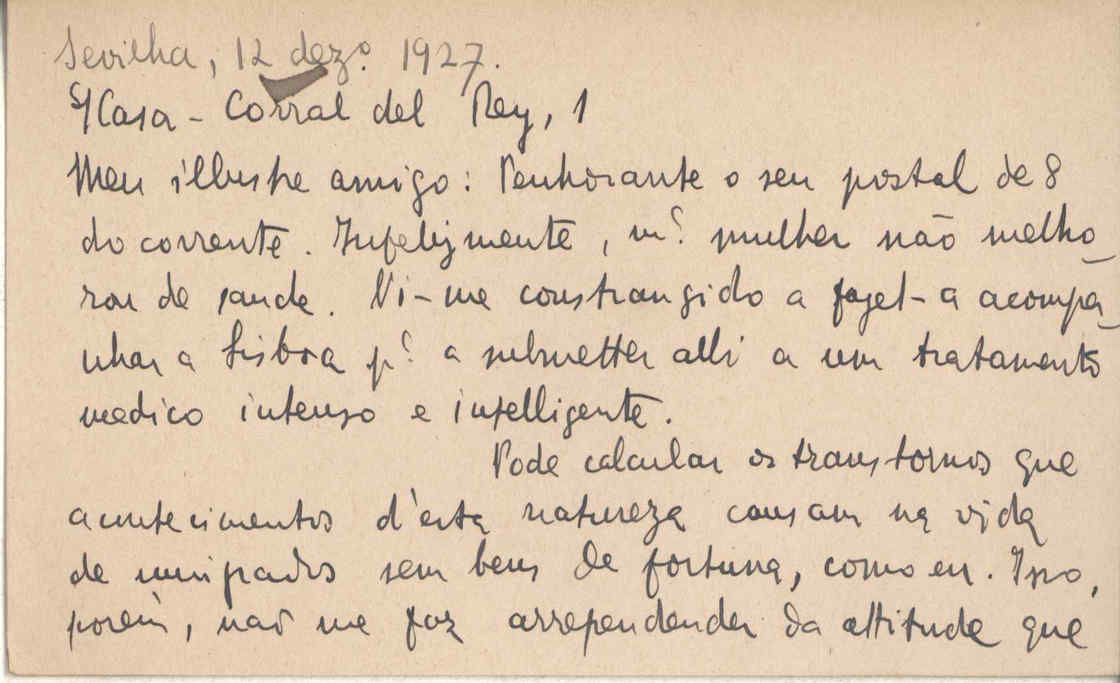 Sevilha, 12 dezº. 1927.
S/Casa - Corral del Rey, 1
Meu illustre amigo: Penhorante o seu postal de 8
do corrente. Infelizmente, mª. mulher não melho-
rou de saude. Vi-me constrangido a fazel-a acompa-
nhar a Lisboa pª. a submetter alli a um tratamento
medico intenso e intelligente.
Pode calcular os transtornos que
acontecimentos d'esta natureza causam na vida
de emigrados sem bens de fortuna, como eu. Isso,
porém, não me faz arrepender da attitude que